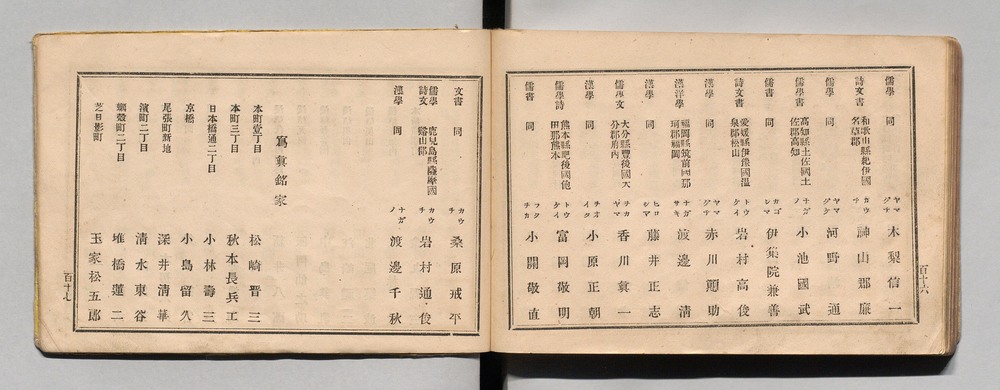 儒學 同 ヤマグチ 木梨信一
詩文書 和歌山縣紀伊國名草郡 カウチ 神山郡廉
儒學 同 ヤマグチ 河野通
儒學書 高知縣土佐國土佐郡高知 ナガノ 小池國武
儒書 同 カゴシマ 伊集院兼善
詩文書 愛媛縣伊豫國温泉郡松山 トウケイ 岩村高俊
漢學 同 ヤマグチ 赤川戇助
漢洋學 福岡縣筑前國那珂郡福岡 ナガサキ 渡邊清
漢學 同 ヒロシマ 藤井正志
儒學文 大分縣豐後國大分郡府内 オカヤマ 香川眞一
漢學 同 チオイタ 小原正朝
儒學詩 熊本縣肥後國飽田郡熊本 トウケイ 富岡敬明
儒書 同 フクチカ 小關敬直
百十六
文書 同 カウチ 桑原戒平
儒學詩文 鹿兒島縣薩摩國谿山郡 カウチ 岩村通俊
漢學 同 ナガノ 渡邊千秋
寫眞銘家
本町壹丁目 松崎晋三
本町三丁目 秋本長兵工
日本橋通二丁目 小林壽三
京橋 小島留久
尾張町新地 深井清華
濱町二丁目 清水東谷
蠣殼町二丁目 堆橋蓮二
芝日影町 玉家松五郎
百十七